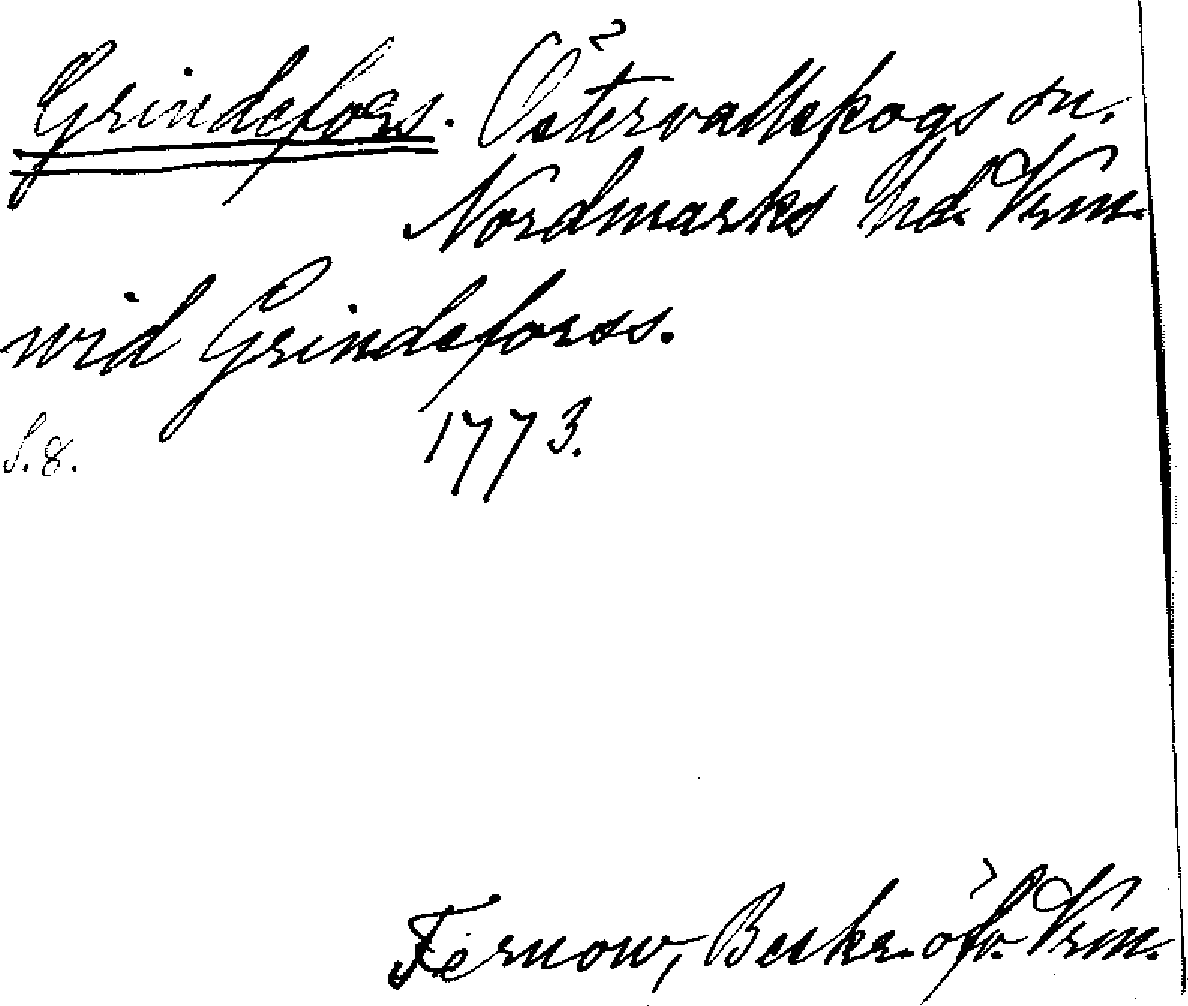 Grindefors. Östervallskogs sn.
Nordmarks hd. Vrm.
wid Grindeforss.
S. 8. 1773.
Fernow, Beskr. öfv. Vrm.